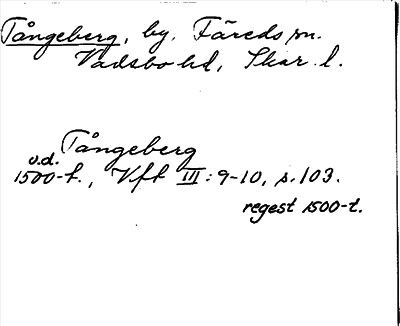 Tångeberg, by. Färeds sn.
Vadsbo hd, Skar. l.
Tångeberg
u.d.
1500-t., Vft III: 9-10, s. 103.
regest 1500-t.